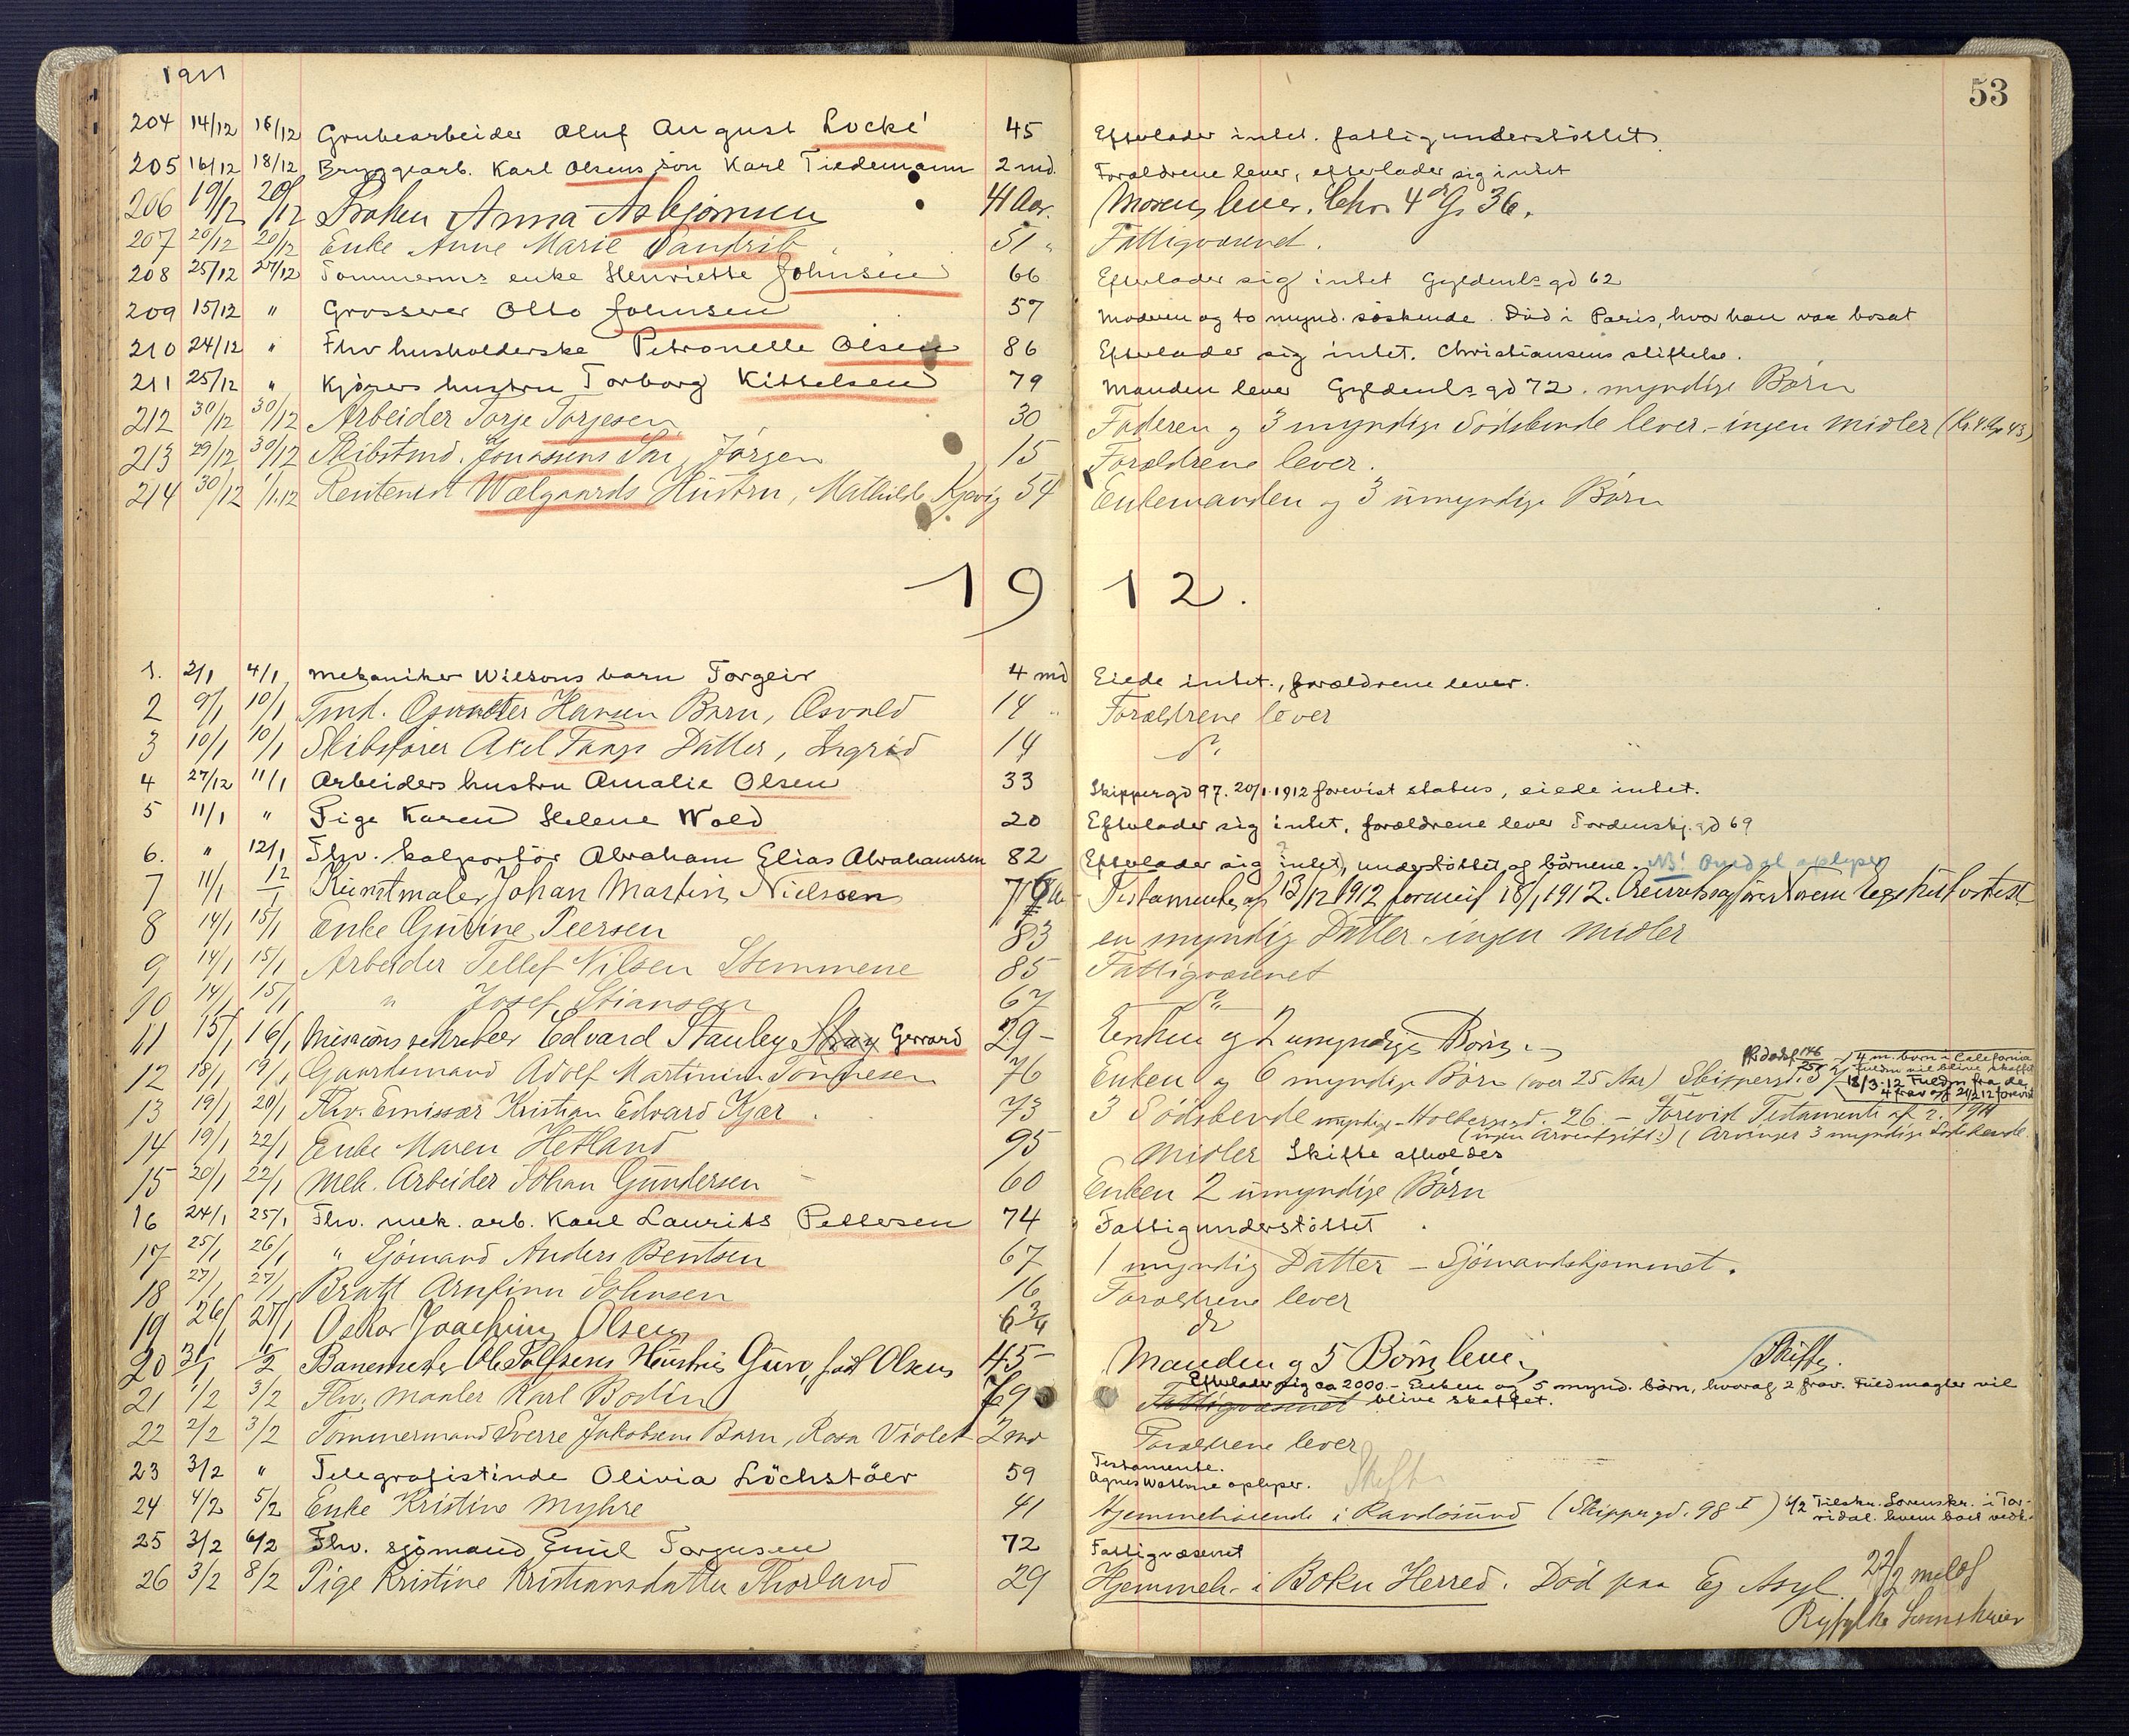 1911
53
204 14/12 16/12 Grubearbeider Oluf August Locké 45 Efterlader intet. fattigunderstöttet.
205 16/12 18/12 Bryggearb. Karl Olsens sön Karl Tiedemann 2 md. Forældrene lever, efterlader sig intet
206 19/12 20/12 Fröken Anna Asbjörnsen 41 Aar. Moren lever. Chr. 4 s G. 36.
207 20/12 20/12 Enke Anne Marie 51 " Fattigvæsenet.
208 25/12 27/12 Tömmerms enke Henriette Johnsen 66 Efterlader sig intet Gyldenls gd 62
209 15/12 " Grosserer Otto Johnsen 57 Moderen og to mynd. söskende. Död i Paris, hvor han var bosat
210 24/12 " Fhv husholderske Petronelle Olsen 86 Efterlader sig intet. Christiansens stiftelse.
211 25/12 " Kjörers hustru Torborg Kittelsen 79 Manden lever Gyldenls gd 72. myndige Börn
212 30/12 30/12 Arbeider Torje Torjesen 30 Faderen g 3 myndige Södskende lever. - ingen midler
213 29/12 30/12 Skibstmd. Jonassens Sön, Jörgen 15 Forældrene lever.
214 30/12 1/1.12 Rentenist Wælgaards Hustru, Mathilde Kjevig 54 Enkemanden g 3 umyndige Börn
1912.
1. 2/1 4/1 Mekaniker Wilsons barn Torgeir 4 md Eiede intet., forældrene lever.
2 9/1 10/1 Tmd. Hansen Barn, Osvald 14 " Forældrene lever
3 10/1 10/1 Skibsförer Axel Fangs Datter, Ingrid 14 do
4 27/12 11/1 Arbeiders hustru Amalie Olsen 33 Skippergd 97. 20/1.1912 forevist status, eiede intet.
5 11/1 " Pige Karen Helene Wold 20 Efterlader sig intet, forældrene lever Tordenskj. gd 69
6. " 12/1 Fhv. kolportör Abraham Elias Abrahamsen 82 Efterlader sig intet, understöttet og börnene. NB!
7 11/1 12/1 Kunstmaler Johan Martin Nielssen Testamente af 13/12 1912 18/1 1912.
8 14/1 15/1 Enke Gurine Peersen 83 en myndig Datter - ingen midler
9 14/1 15/1 Arbeider Tellef Nilsen Stemmene 85 Fattigvæsenet
10 14/1 15/1 " Josef Stiansen 67 do
11 15/1 16/1 Missions sekretær Edvard Stanley Stray Gerrard 29 - Enken og 2 umyndige Börn.
12 18/1 19/1 Gaardsmand Adolf Martinius Tönnesen 76 Enken g 6 myndige Börn (over 25 Aar) Skippergd. 4 m. barn i California Fuldm vil blive skaffet 18/3.12 Fuldm fra de 4 frav. af 24/2 12 forevist
13 19/1 20/1 Fhv. Emissær Kristian Edvard Kjær. 73 3 Södskende myndige - Holbergsgd. 26. - Forevist Testamente af 2. 1911
(ingen Arveafgift.) (Arvinger 3 myndige Södskende.
14 19/1 22/1 Enke Maren Hetland 95 Midler Skifte afholdes
15 20/1 22/1 Mek. Arbeider Johan Gundersen 60 Enken 2 umyndige Börn
16 24/1 25/1 Fhv. mek. arb. Karl Laurits Pettersen 74 Fattigunderstöttet
17 25/1 26/1 " Sjömand Anders Bentsen 67 1 myndig Datter - Sjömandshjemmet.
18 27/1 27/1 Bratt Arnfinn Johnsen 16 Forældrene lever
19 26/1 27/1 Oskar Joachim Olsen 6 3/4 do
20 31/1 1/2 Banemester Ole Hustru Guro, föd Olsen 45 - Manden g 5 Börn lever Skifte.
21 1/2 3/2 Fhv. Maaler Karl Bodin 69 Efterlader sig ca 2000.- Enken og 5 mynd. börn, hvoraf 2 frav. Fuldmagter vil
Fattigvæsenet blive skaffet.
22 2/2 3/2 Tömmermand Sverre Jakobsens Barn, Rosa Violet 2 md Forældrene lever
23 3/2 " Telegrafistinde Olivia Löchstöer 59 Testamente.
Agnes Wathne oplyser. Skifte
24 4/2 5/2 Enke Kristine Myhre 41 Hjemmehörende i Randösund (Skippergd. 98 I)
25 3/2 6/2 Fhv. sjömand Emil Torgusen 72 Fattigvæsenet
26 3/2 8/2 Pige Kristine Kristiansdatter Thorland 29 Hjemmeh. i Boku Herred. Död paa Eg Asyl 22/2 meldt
Ryfylke Sorenskriver